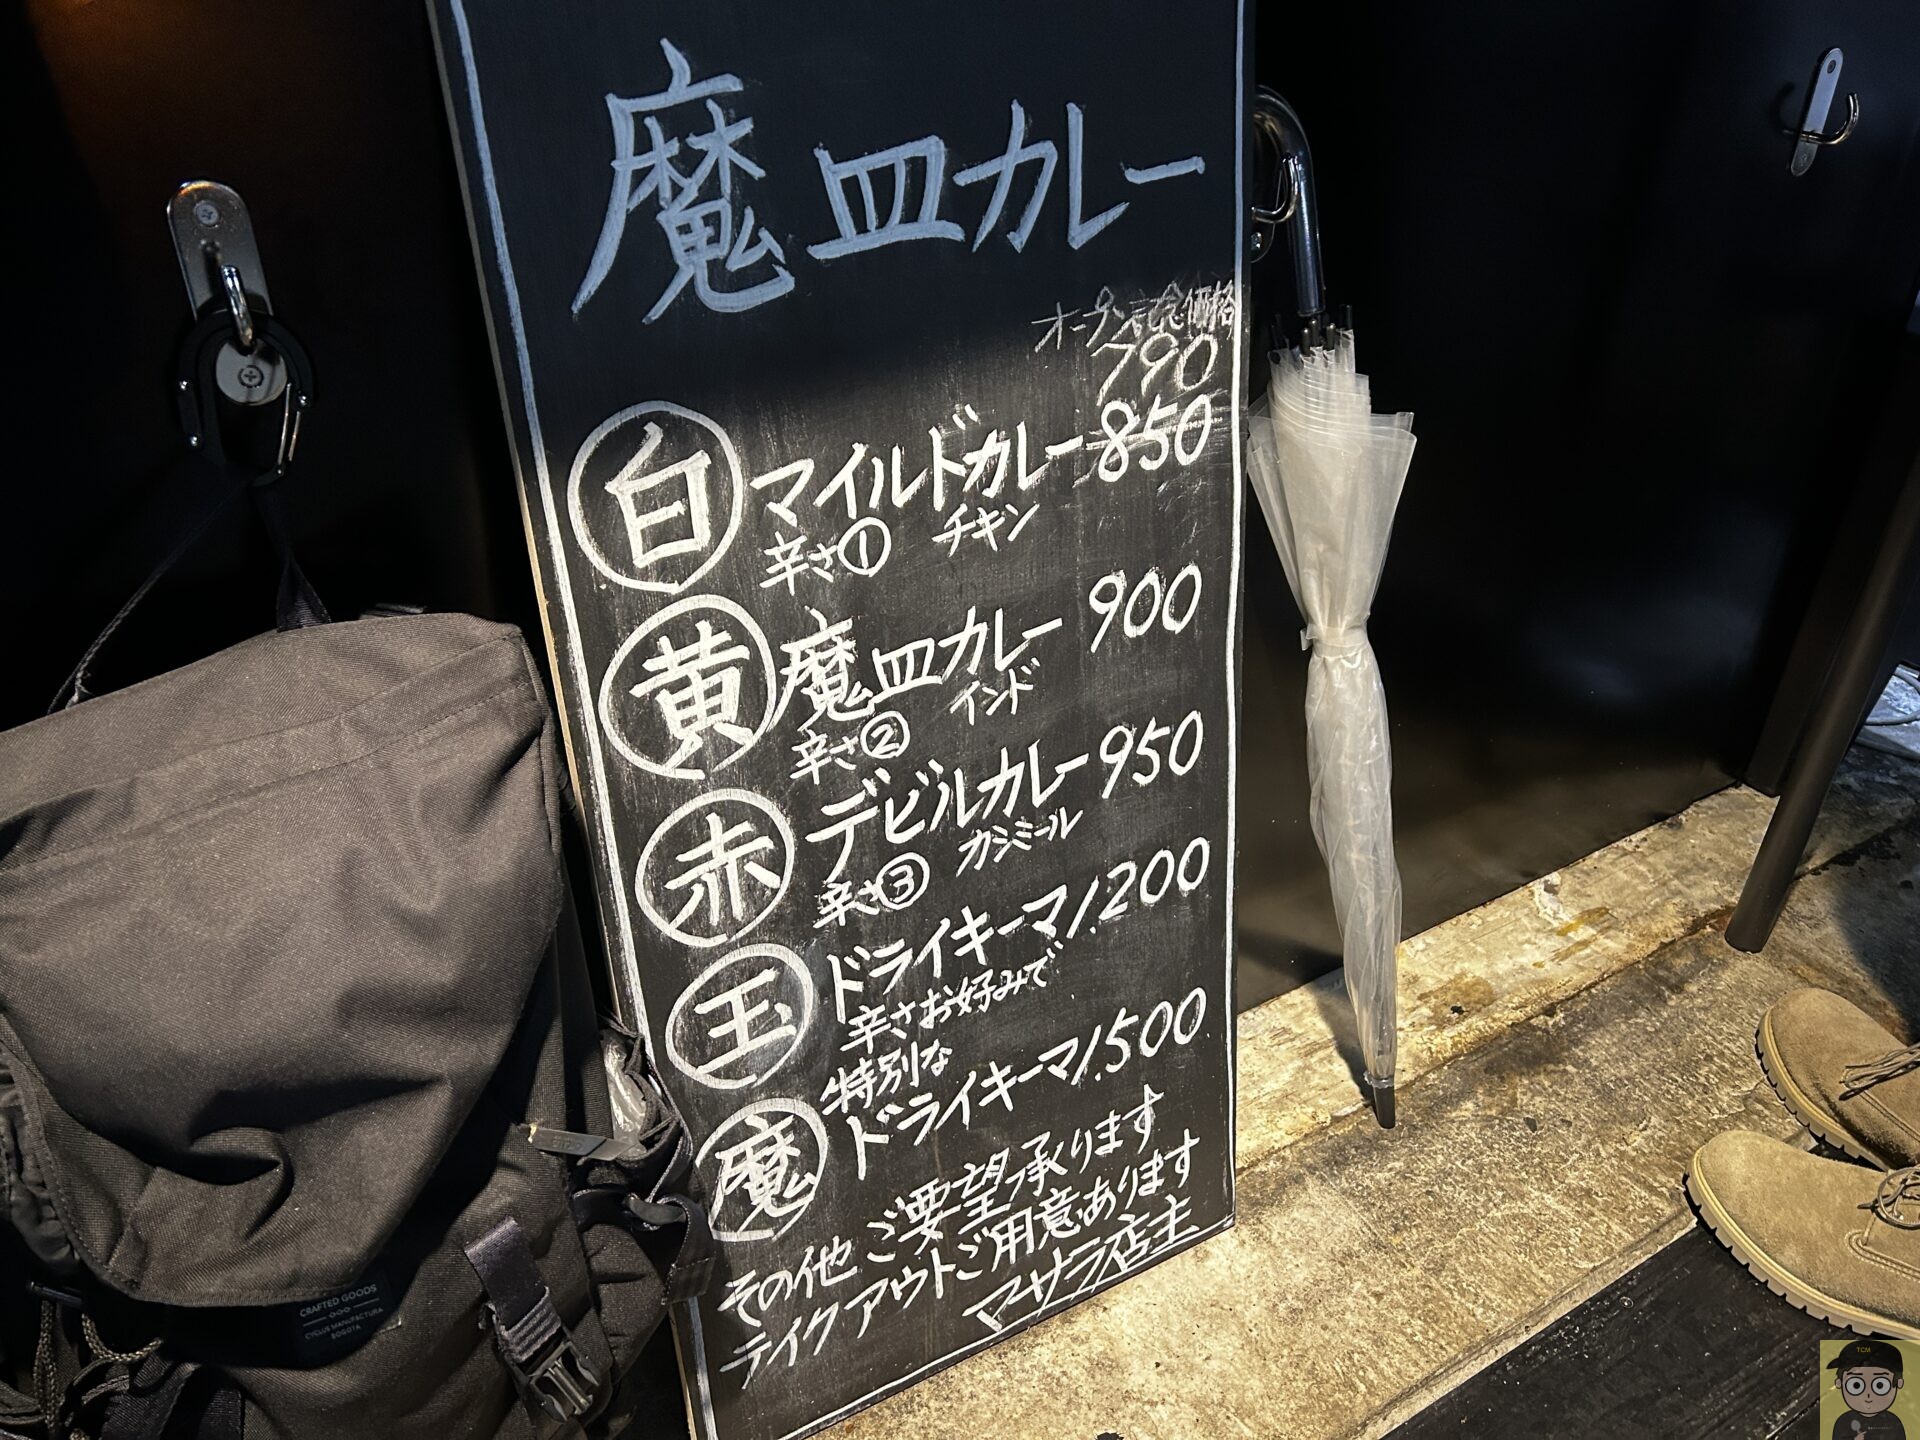 魔皿カレー
オープン記念価格
790
白 マイルドカレー 850
辛さ① チキン
黄 魔皿カレー 900
辛さ② インド
赤 デビルカレー 950
辛さ③ カシミール
玉 ドライキーマ 1.200
辛さお好みで
魔 特別な
ドライキーマ 1.500
その他 ご要望承ります
テイクアウトご用意あります
マサラ店主
CRAFTED GOODS
CYCLUS MANUFACTURA
BOGOTA
TCM